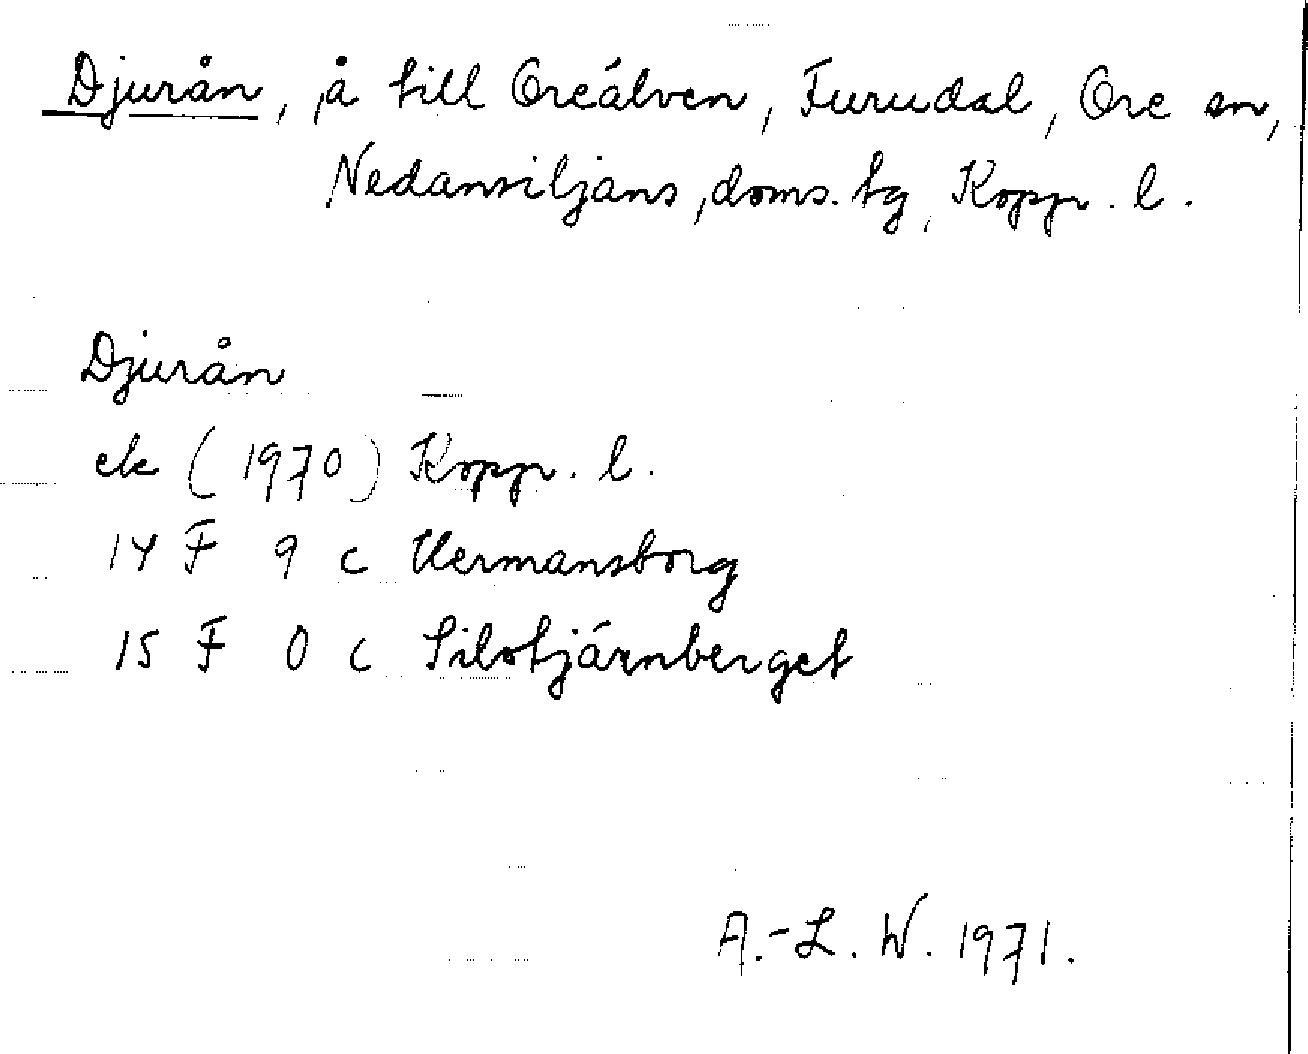 Djurån, å till Oreälven, Furudal, Ore sn,
Nedansiljans doms. tg, Kopp. l.
Djurån
ek (1970) Kopp. l.
14 F 9 c Hermansborg
15 F 0 c Silotjärnberget
A.-L. W. 1971.